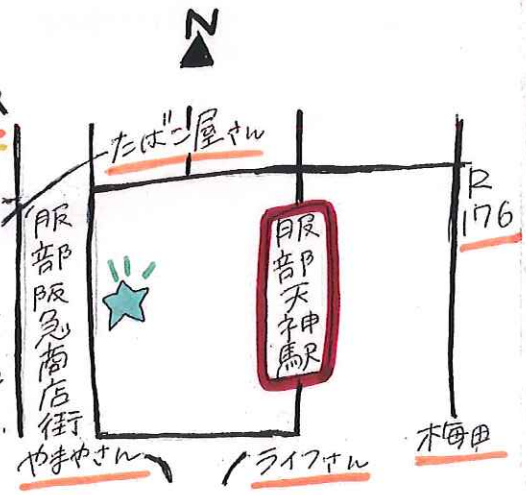 N
たばこ屋さん
R
176
服部阪急商店街
服部天神駅
やまやさん
ライフさん
梅田